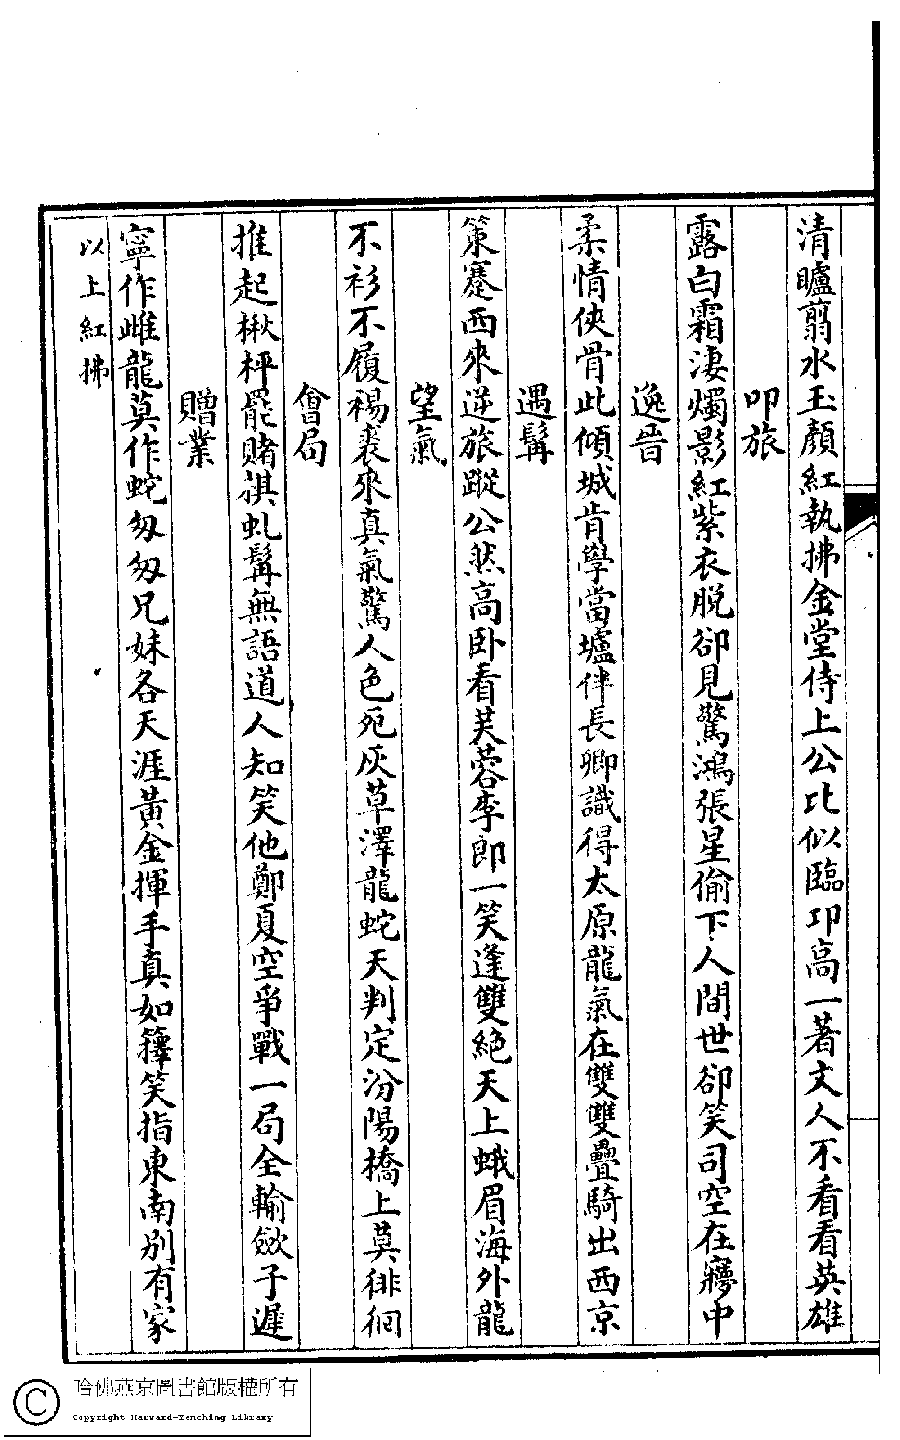 清矑翦水玉顏紅執拂金堂侍上公比似臨邛高一著文人不看看英雄
叩旅
露白霜淒燭影紅紫衣脫卻見驚鴻張星偷下人間世卻笑司空在㝱中
逸晉
柔情俠骨此傾城肯學當壚伴長卿識得太原龍氣在雙雙疊騎出西京
遇髯
策蹇西來逆旅蹤公然高臥看芙蓉李郎一笑逢雙絕天上蛾眉海外龍
望氣
不衫不履裼裘來真氣驚人色死灰草澤龍蛇天判定汾陽橋上莫徘徊
會局
推起楸枰罷賭棋虬髯無語道人知笑他鄭夏空爭戰一局全輸斂子遲
贈業
寧作雌龍莫作蛇匆匆兄妹各天涯黃金揮手真如籜笑指東南別有家
以上紅拂
哈佛燕京圖書館版權所有
Copyright Harvard-Yenching Library